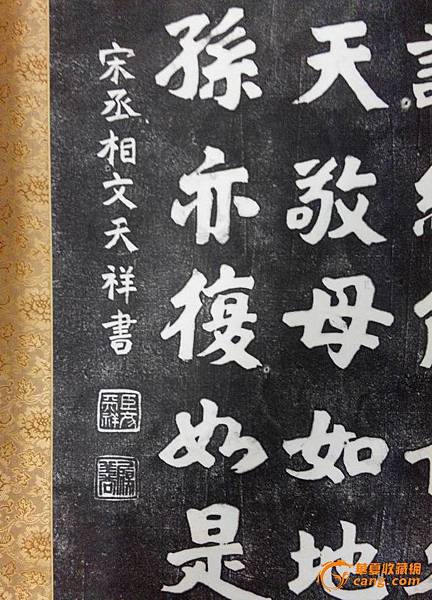 天敬母如地
孫亦復如是
宋丞相文天祥書
臣文天祥
華夏收藏網
cang.com